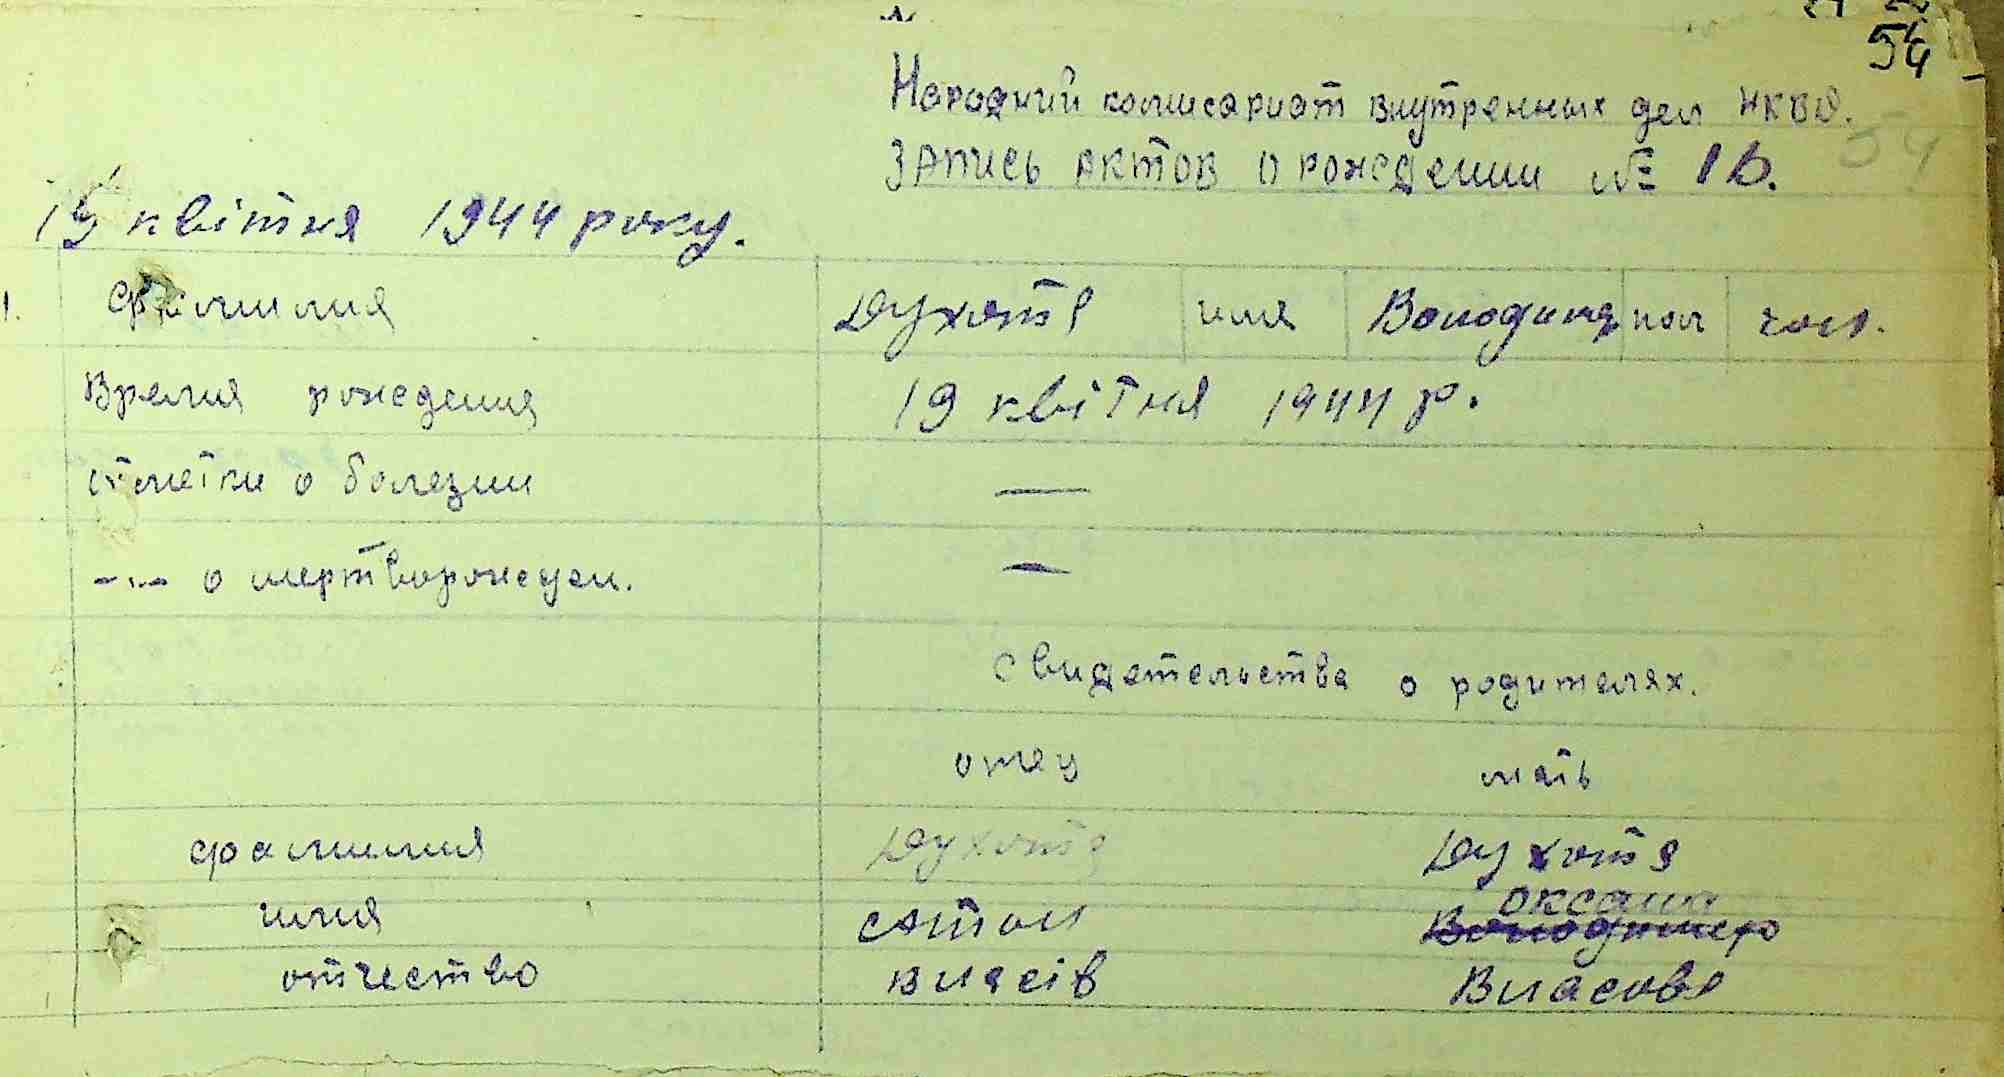 54
Народний комисариат внутренных дел НКВД.
54
Запись актов о рождении № 16.
15 квітня 1944 року.
1. фамилия Духота имя Володимир пол чол.
Время рождения 19 квітня 1944 р.
отметки о болезни —
-„- о мертворожден. —
свидетельства о родителях.
отец мать
фамилия Духота Духота
Оксана
имя Антон Володимер
отчество Власів Власова